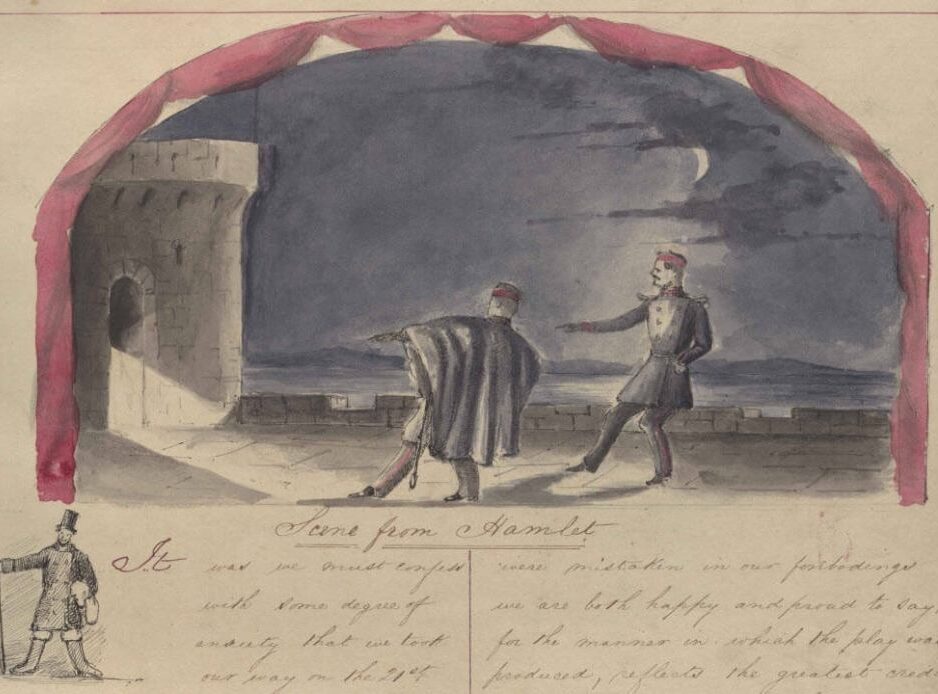 Scene from Hamlet
It was we must confess
with some degree of
anxiety that we took
our way on the 21st
were mistaken in our forbodings
we are both happy and proud to say,
for the manner in which the play was
produced, reflects the greatest cred